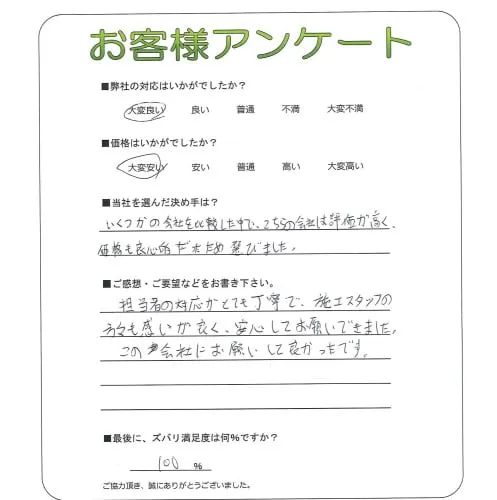 お客様アンケート
■弊社の対応はいかがでしたか？
大変良い 良い 普通 不満 大変不満
■価格はいかがでしたか？
大変安い 安い 普通 高い 大変高い
■当社を選んだ決め手は？
いくつかの会社を比較した中で、こちらの会社は評価が高く、
価格も良心的だったため選びました。
■ご感想・ご要望などをお書き下さい。
担当者の対応がとても丁寧で、施工スタッフの
方々も感じが良く、安心してお願いできました。
この会社にお願いして良かったです。
■最後に、ズバリ満足度は何%ですか？
100 %
ご協力頂き、誠にありがとうございました。